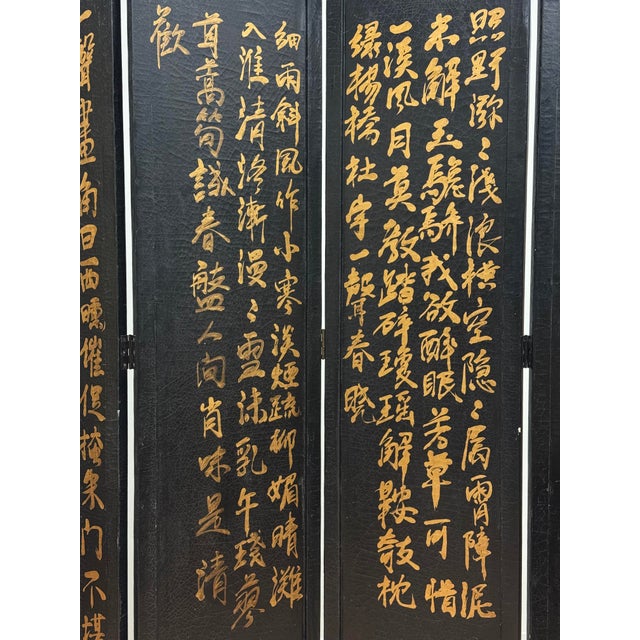 照野瀰々淺浪橫空隱々層霄障泥
未解玉驄驕我欲醉眠芳草可惜
一溪風月莫教踏碎瓊瑤解鞍欹枕
綠楊橋杜宇一聲春曉
細雨斜風作小寒淡煙疏柳媚晴灘
入淮清洛漸漫々雪沫乳午琖蓼
茸蒿筍試春盤人间有味是清
歡
一聲畫角日西曛催促掩朱門不堪